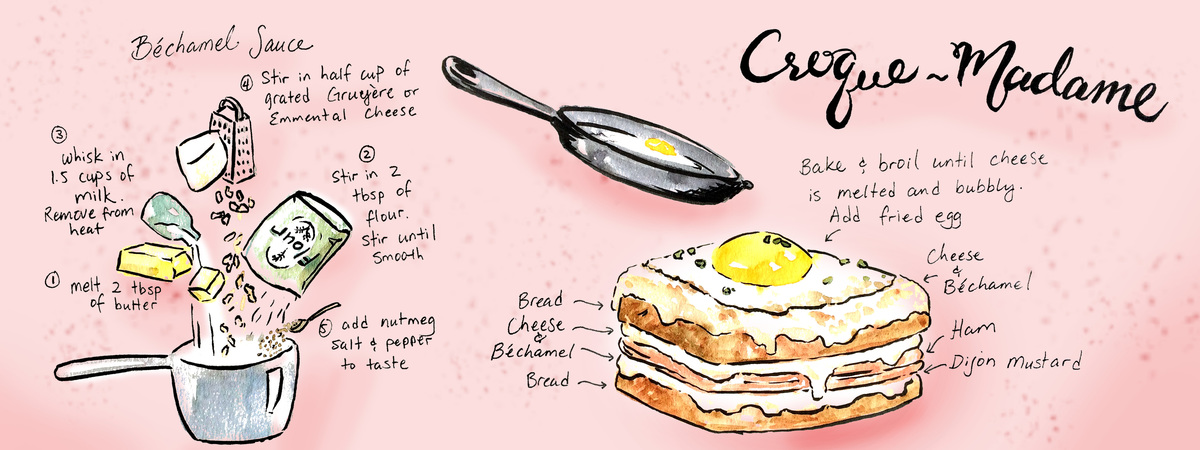 Béchamel Sauce
④ Stir in half cup of
grated Gruyère or
Emmental Cheese
③
whisk in
1.5 cups of
milk.
Remove from
heat
②
Stir in 2
tbsp of
flour.
Stir until
Smooth
Flour
① melt 2 tbsp
of butter
⑤ add nutmeg
salt & pepper
to taste
Croque-Madame
Bake & broil until cheese
is melted and bubbly.
Add fried egg
Cheese
&
Béchamel
Ham
Dijon Mustard
Bread
Cheese
&
Béchamel
Bread